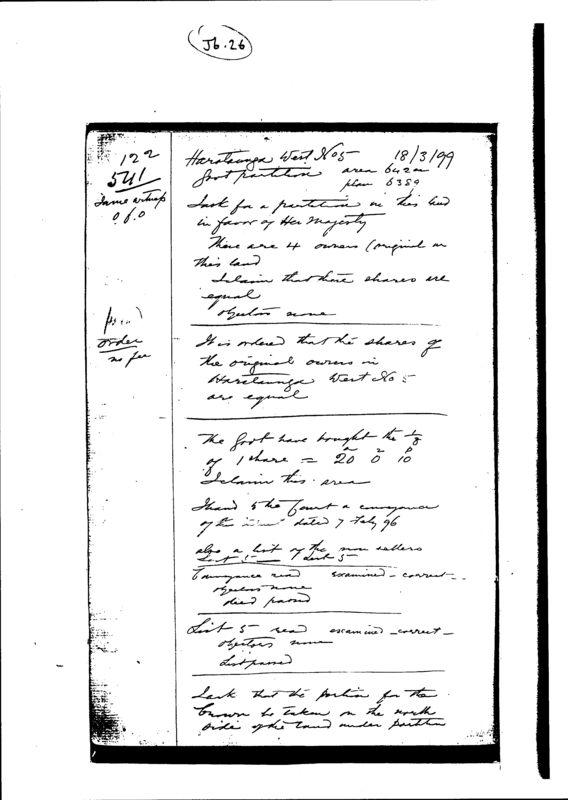 J6.26
122
541
Same witness
o f. o
Harataunga West No 5 18/3/99
Govt partition area 642 a
plan 6389
I ask for a partition on this land
in favor of Her Majesty
There are 4 owners (original on
this land
I claim that these shares are
equal
Objectors none
order
no fee
It is ordered that the shares of
the original owners in
Harataunga West No 5
are equal
The Govt have bought the 1/8
of 1 share = 20a 0r 10p
I claim this area
I hand to the Court a conveyance
of the dated 7 Feby 96
also a list of the non sellers
List 5
Conveyance read examined - correct -
objectors none
deed passed
List 5 read examined - correct -
Objectors none
List passed
I ask that the portion for the
Crown be taken on the north
side of the land under partition